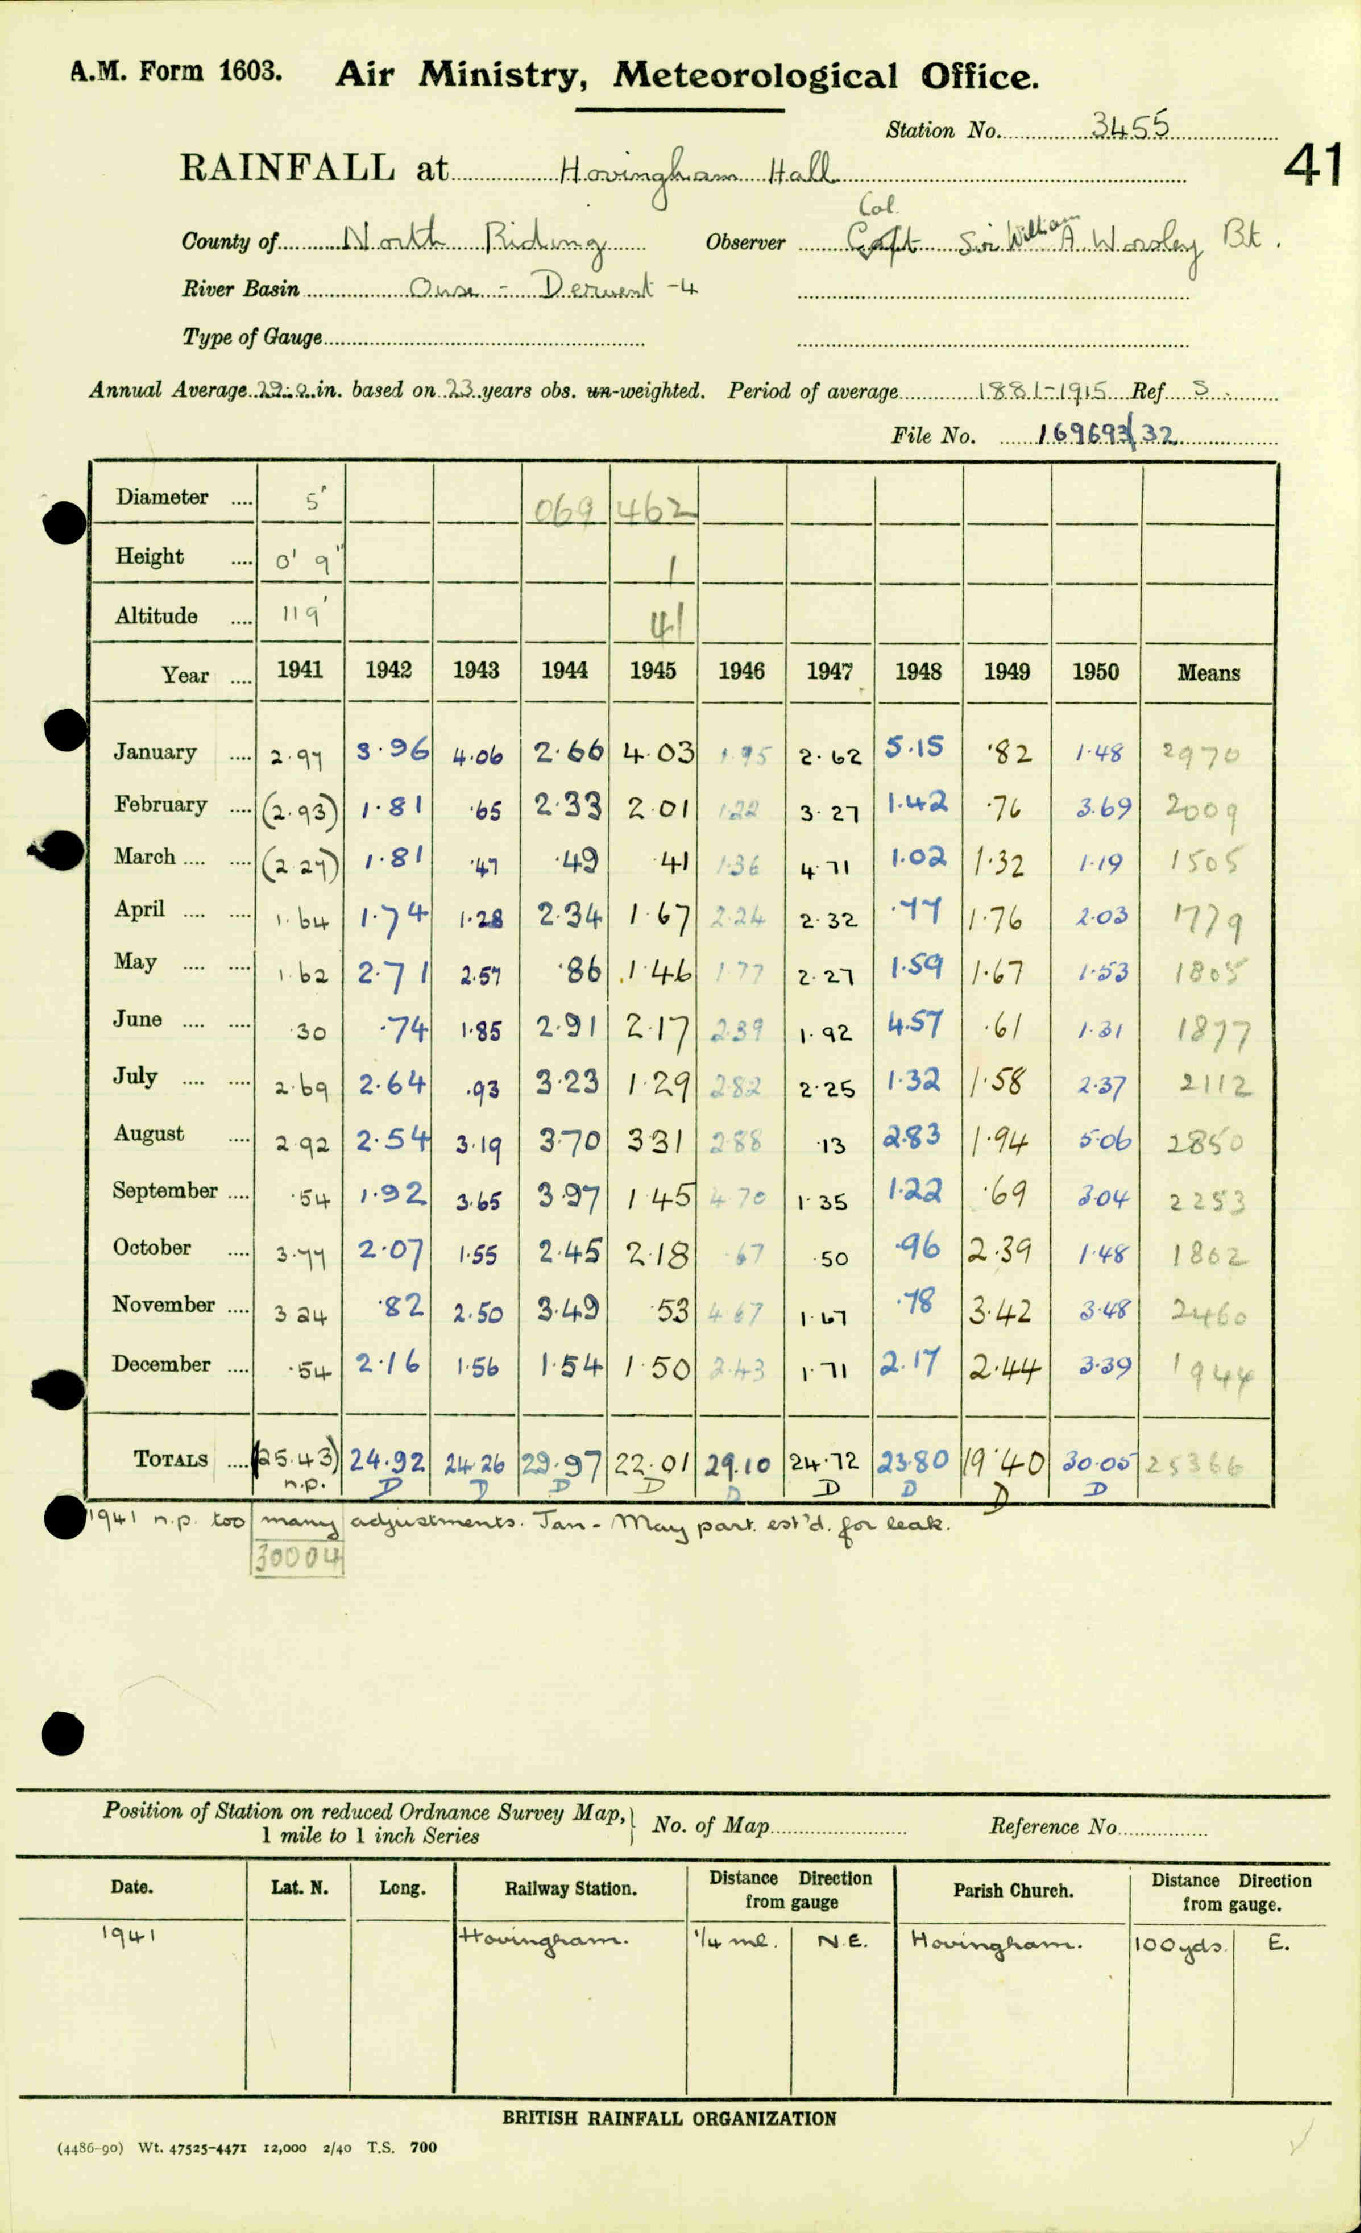 A.M. Form 1603. Air Ministry, Meteorological Office.
Station No. 3455
41
RAINFALL at Hovingham Hall
Col.
County of North Riding Observer Capt Sir William A Worsley Bt.
River Basin Ouse - Derwent -4
Type of Gauge
Annual Average in. based on 23 years obs. un-weighted. Period of average 1881-1915 Ref S.
File No. 169693/32
Diameter .... 5' 069 462
Height .... 0' 9" 1
Altitude .... 119' 41
Year .... 1941 1942 1943 1944 1945 1946 1947 1948 1949 1950 Means
January .... 2.97 3.96 4.06 2.66 4.03 1.95 2.62 5.15 .82 1.48 2970
February .... (2.93) 1.81 .65 2.33 2.01 1.22 3.27 1.42 .76 3.69 2009
March .... .... (2.27) 1.81 .47 .49 .41 1.36 4.71 1.02 1.32 1.19 1505
April .... .... 1.64 1.74 1.28 2.34 1.67 2.24 2.32 .77 1.76 2.03 1779
May .... .... 1.62 2.71 2.57 .86 1.46 1.77 2.27 1.59 1.67 1.53 1805
June .... .... .30 .74 1.85 2.91 2.17 2.39 1.92 4.57 .61 1.31 1877
July .... .... 2.69 2.64 .93 3.23 1.29 2.82 2.25 1.32 1.58 2.37 2112
August .... 2.92 2.54 3.19 3.70 3.31 2.88 .13 2.83 1.94 5.06 2850
September .... .54 1.92 3.65 3.97 1.45 4.70 1.35 1.22 .69 3.04 2253
October .... 3.77 2.07 1.55 2.45 2.18 .67 .50 .96 2.39 1.48 1802
November .... 3.24 .82 2.50 3.49 .53 4.67 1.67 .78 3.42 3.48 2460
December .... .54 2.16 1.56 1.54 1.50 2.43 1.71 2.17 2.44 3.39 1944
TOTALS .... (25.43) 24.92 24.26 29.97 22.01 29.10 24.72 23.80 19.40 30.05 25366
n.p. D D D D D D D D D
1941 n.p. too many adjustments. Jan - May part. est'd. for leak.
30004
Position of Station on reduced Ordnance Survey Map, } No. of Map Reference No.
1 mile to 1 inch Series
Date. Lat. N. Long. Railway Station. Distance Direction from gauge Parish Church. Distance Direction from gauge.
1941 Hovingham. 1/4 ml. N.E. Hovingham. 100yds. E.
BRITISH RAINFALL ORGANIZATION
(4486-90) Wt. 47525-4471 12,000 2/40 T.S. 700